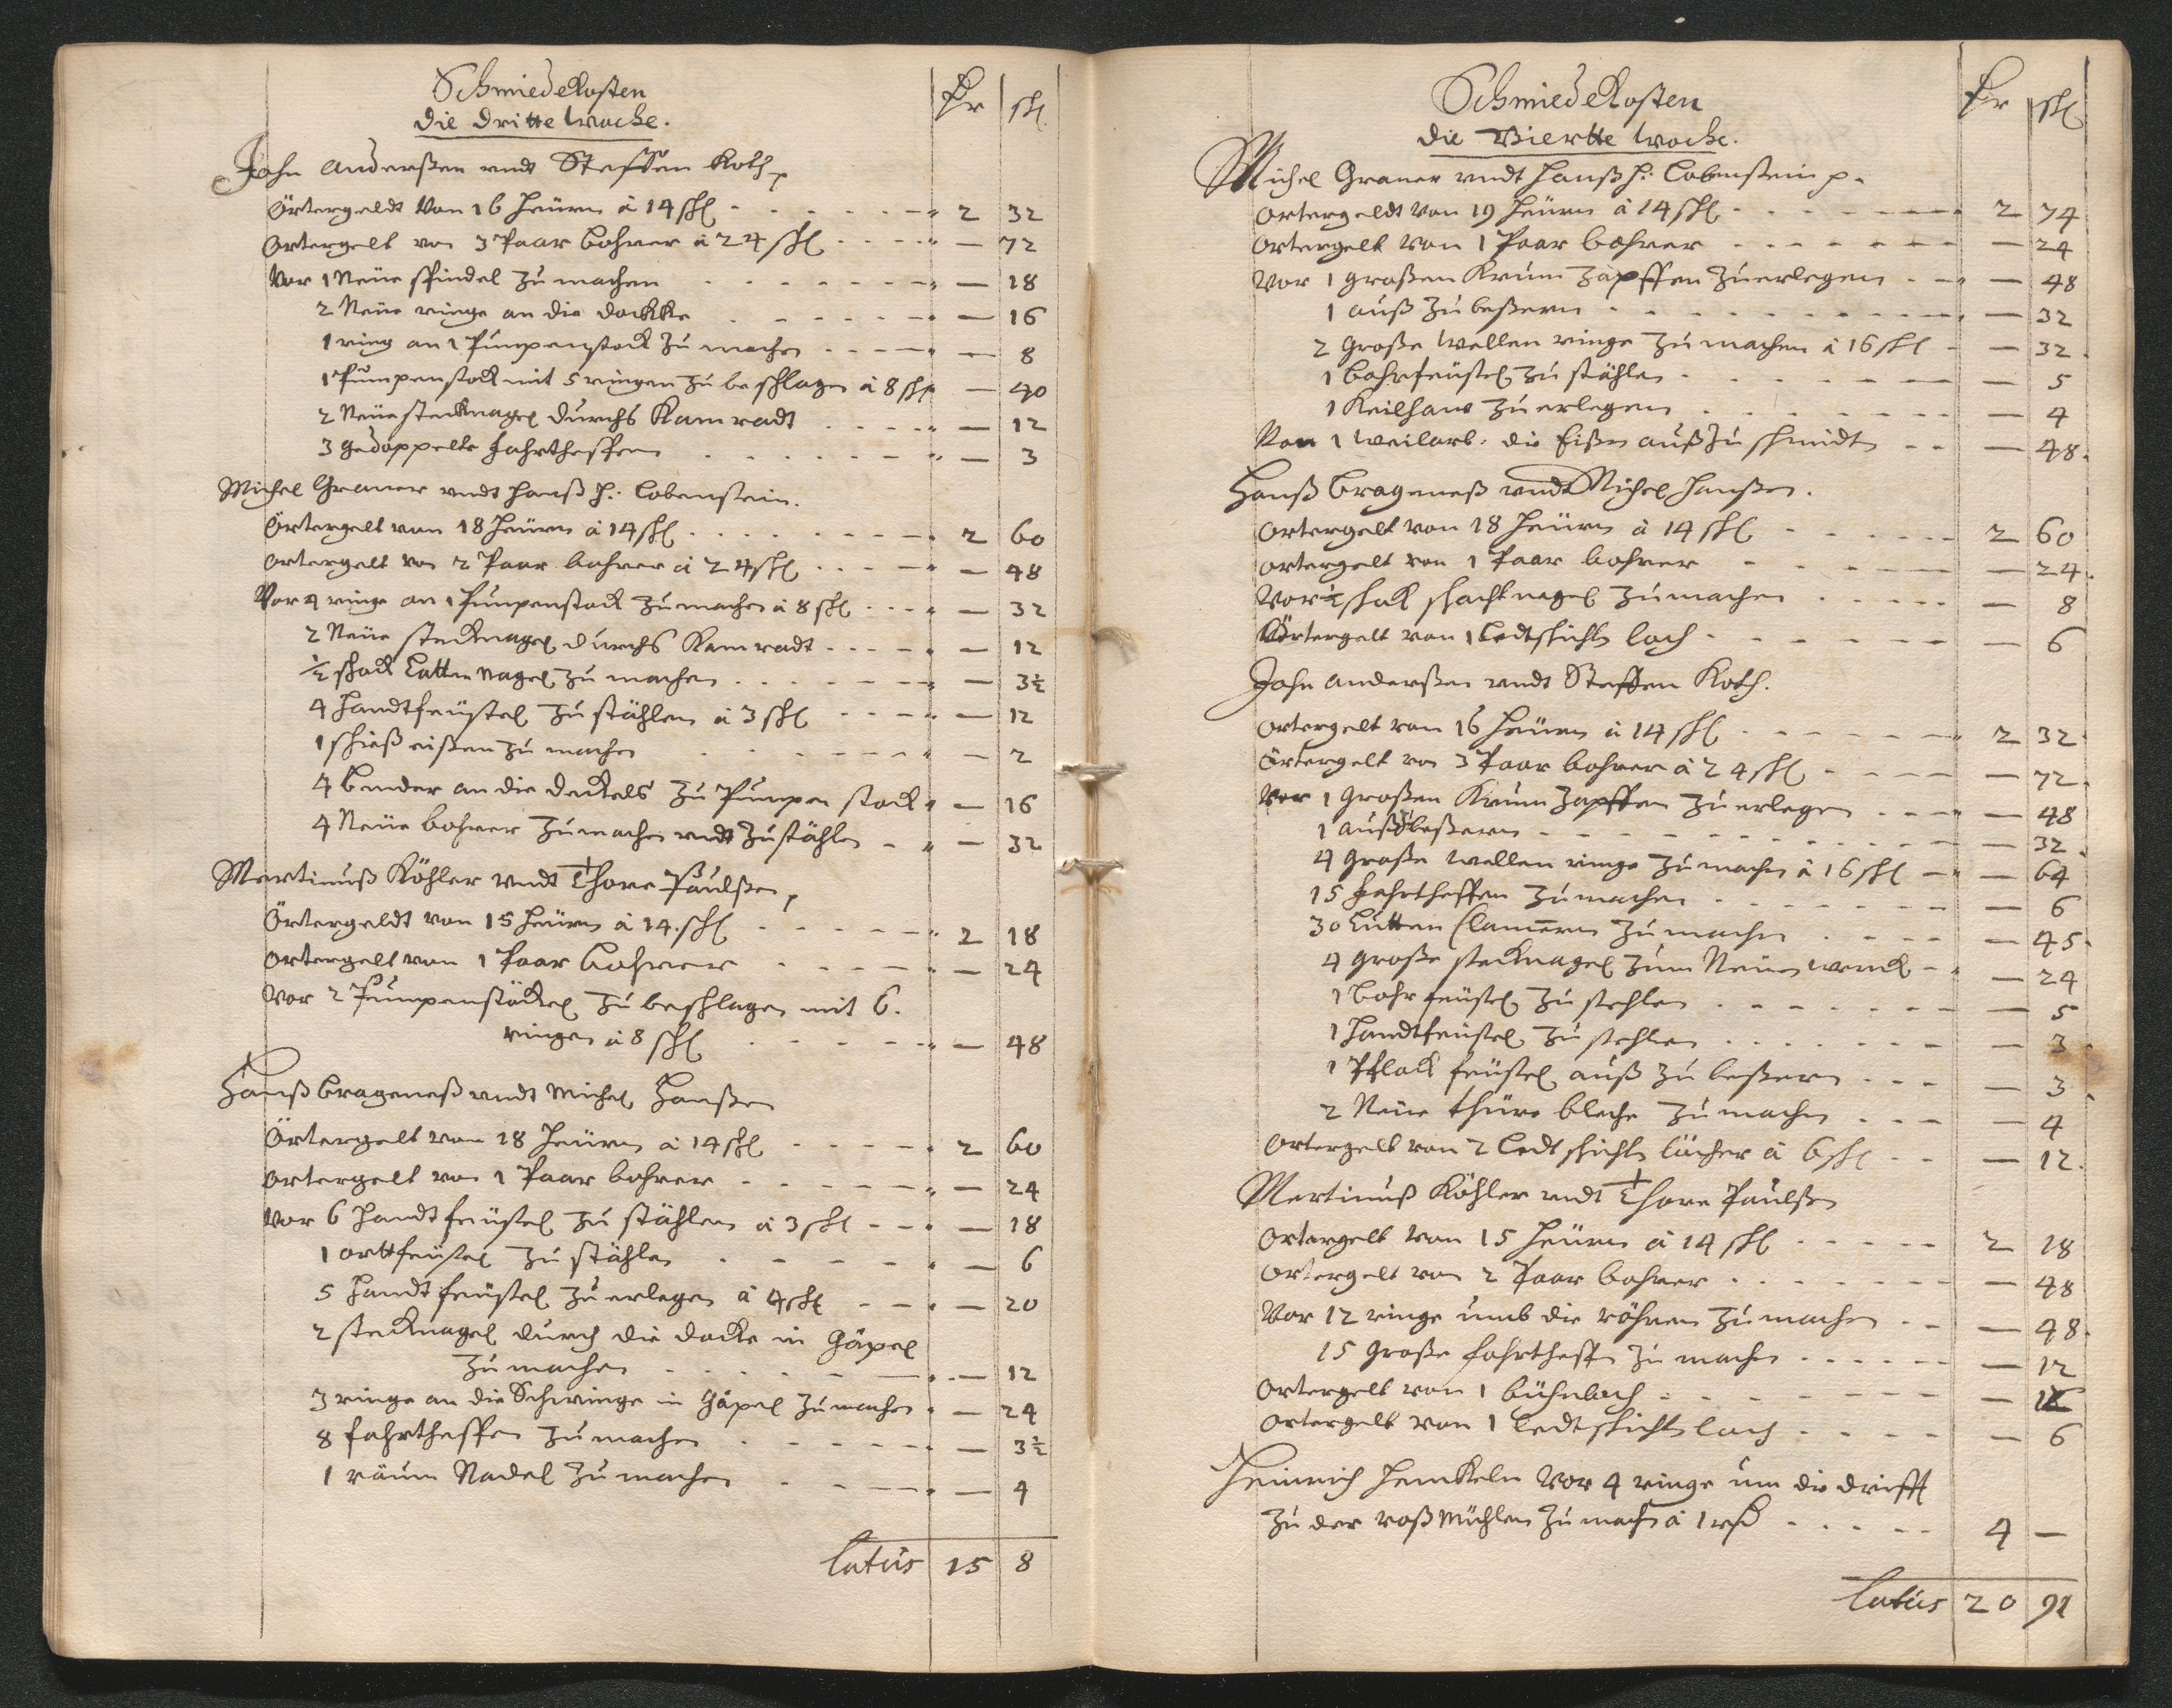 Schmiedekosten
die dritte woche.
Rr | ßhl
John Anderßen undt Steffen Koth,
Örtergeldt Von 16 Heüern à 14 ßhl - - - - - - 2 | 32
Örtergelt von 3 Paar bohrer à 24 ßhl - - - - — | 72
Vor 1 Neüe spindel zu machen - - - - - - — | 18
2 Neüe ringe an die dockke - - - - - - — | 16
1 ring an 1 Pumpenstock zu machen - - - - — | 8
1 Pumpenstock mit 5 ringen zu beschlagen à 8 ßhl — | 40
2 Neüe stecknagel durchs Kamradt - - - - — | 12
3 gedoppelte fahrthespen - - - - - - — | 3
Michel Graner undt Hanß H: Lobenstein.
Örtergelt von 18 Heüern à 14 ßhl - - - - - - 2 | 60
Örtergelt von 2 Paar bohrer à 24 ßhl - - - - — | 48
Vor 4 ringe an 1 Pumpenstock zu machen à 8 ßhl - - - — | 32
2 Neüe stecknagel durchs Kamradt - - - - — | 12
½ schock Latten Nagel zu machen - - - - - — | 3½
4 Handtfeüstel zu stählen à 3 ßhl - - - - — | 12
1 schieß eißen zu machen - - - - - - — | 2
4 bender an die deckels zu Pumpen stock — | 16
4 Neüe bohrer zu machen undt zu stählen - - — | 32
Martinuß Köhler undt Thore Paulßen,
Örtergeldt von 15 Heüern à 14. ßhl - - - - - - 2 | 18
Örtergelt von 1 Paar bohrer - - - - - — | 24
Vor 2 Pumpenstöckel zu beschlagen mit 6.
ringen à 8 ßhl - - - - - - — | 48
Hanß Brageneß undt Michel Hanßen
Örtergelt von 18 Heüern à 14 ßhl - - - - - 2 | 60
Örtergelt von 1 Paar bohrer - - - - - - — | 24
Vor 6 Handtfeüstel zu stählen à 3 ßhl - - - — | 18
1 ortfeüstel zu stählen - - - - - - — | 6
5 Handtfeüstel zu erlegen à 4 ßhl - - - — | 20
2 stecknagel durch die docke in Gäpel
zu machen - - - - - - — | 12
3 ringe an die Schwinge in Gäpel zu machen - — | 24
8 fahrthespen zu machen - - - - - - — | 3½
1 räum Nadel zu machen - - - - - — | 4
Latus | 15 | 8
Schmiedekosten
die Viertte woche.
Rr | ßhl
Michel Graner undt Hanß H: Lobenstein p.
Örtergeldt von 19 Heüern à 14 ßhl - - - - - - 2 | 74
Örtergelt von 1 Paar bohrer - - - - - - — | 24
Vor 1 großen Krum Zapffen zu erlegen - - — | 48
1 auß zu beßern - - - - - - - — | 32
2 große wellen ringe zu machen à 16 ßhl - — | 32
1 bohrfeüstel zu stählen - - - - - - — | 5
1 Keilhaw zu erlegen - - - - - - — | 4
Von 1 weilarb: die Eißen auß zu schmidt - - — | 48.
Hanß Brageneß undt Michel Hanßen.
Örtergelt von 18 Heüern à 14 ßhl - - - - - 2 | 60
Örtergelt von 1 Paar bohrer - - - - - — | 24.
Vor ½ schock schachtnagel zu machen - - - - — | 8
Örtergelt von 1 Ledtschicht loch - - - - - - — | 6
John Anderßen undt Steffen Koth.
Örtergelt von 16 Heüern à 14 ßhl - - - - - - 2 | 32
Örtergelt von 3 Paar bohrer à 24 ßhl - - - - — | 72.
Vor 1 Großen Krum Zapffen zu erlegen - - - — | 48
1 auß zu beßern - - - - - - - — | 32.
4 Große wellen ringe zu machen à 16 ßhl - - — | 64
15 fahrthespen zu machen - - - - - - — | 6
30 Lutten Clamern zu machen - - - - — | 45.
4 Große stecknagel zum Neüen werck - - — | 24
1 bohrfeüstel zu stehlen - - - - - - — | 5
1 Handtfeüstel zu stehlen - - - - - - — | 3.
1 Pflock feüstel auß zu beßern - - - — | 3
2 Neüe thüre bleche zu machen - - - — | 4
Örtergelt von 2 Ledtschicht löcher à 6 ßhl - - — | 12.
Martinuß Köhler undt Thore Paulßen
Örtergelt von 15 Heüern à 14 ßhl - - - - - 2 | 18
Örtergelt von 2 Paar bohrer - - - - - - — | 48
Vor 12 ringe umb die röhren zu machen - - — | 48.
15 Große fahrthespen zu machen - - - - - — | 12
Örtergelt von 1 bühnloch - - - - - - — |
Örtergelt von 1 Ledtschicht loch - - - - — | 6
Heinrich Henckeln Vor 4 ringe um die drifft
zu der roß Mühlen zu machen à 1 - - - - - 4 | —
Latus | 20 | 91